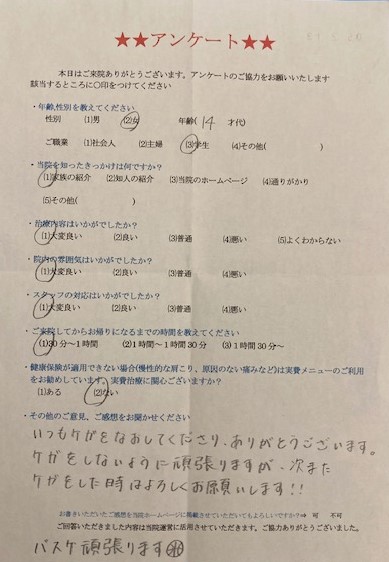 ★★アンケート★★
本日はご来院ありがとうございます。アンケートのご協力をお願いいたします
該当するところに○印をつけてください
・年齢,性別を教えてください
性別 (1)男 (2)女 年齢( 14 才代)
ご職業 (1)社会人 (2)主婦 (3)学生 (4)その他( )
・当院を知ったきっかけは何ですか?
(1)家族の紹介 (2)知人の紹介 (3)当院のホームページ (4)通りがかり
(5)その他( )
・治療内容はいかがでしたか?
(1)大変良い (2)良い (3)普通 (4)悪い (5)よくわからない
・院内の雰囲気はいかがでしたか?
(1)大変良い (2)良い (3)普通 (4)悪い
・スタッフの対応はいかがでしたか?
(1)大変良い (2)良い (3)普通 (4)悪い
・ご来院してからお帰りになるまでの時間を教えてください
(1)30分～1時間 (2)1時間～1時間30分 (3)1時間30分～
・健康保険が適用できない場合(慢性的な肩こり、原因のない痛みなど)は実費メニューのご利用
をお勧めしています。実費治療に関心ございますか?
(1)ある (2)ない
・その他のご意見、ご感想をお聞かせください
いつもケガをなおしてくださり、ありがとうございます。
ケガをしないように頑張りますが、次また
ケガをした時はよろしくお願いします!!
お書きいただいたご感想を当院ホームページに掲載させていただいてもよろしいですか?⇒ 可 不可
ご回答いただきました内容は当院運営に活用させていただきます。ご協力ありがとうございました。
バスケ頑張ります